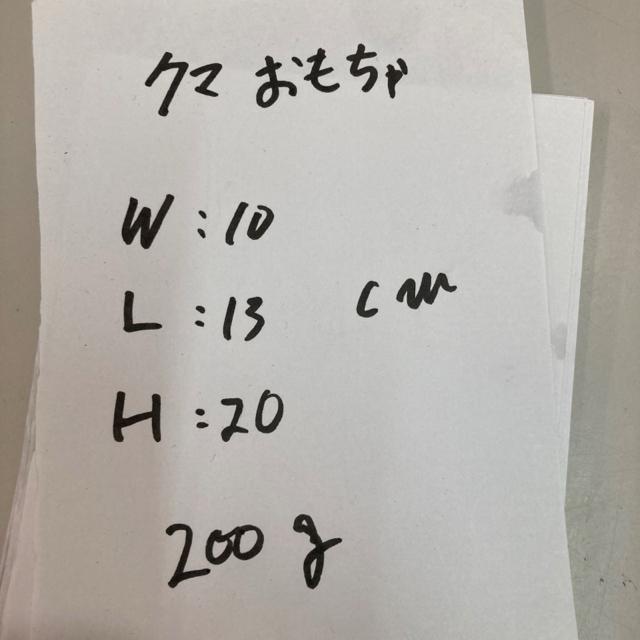 クマ おもちゃ
W:10
L:13 cm
H:20
200g